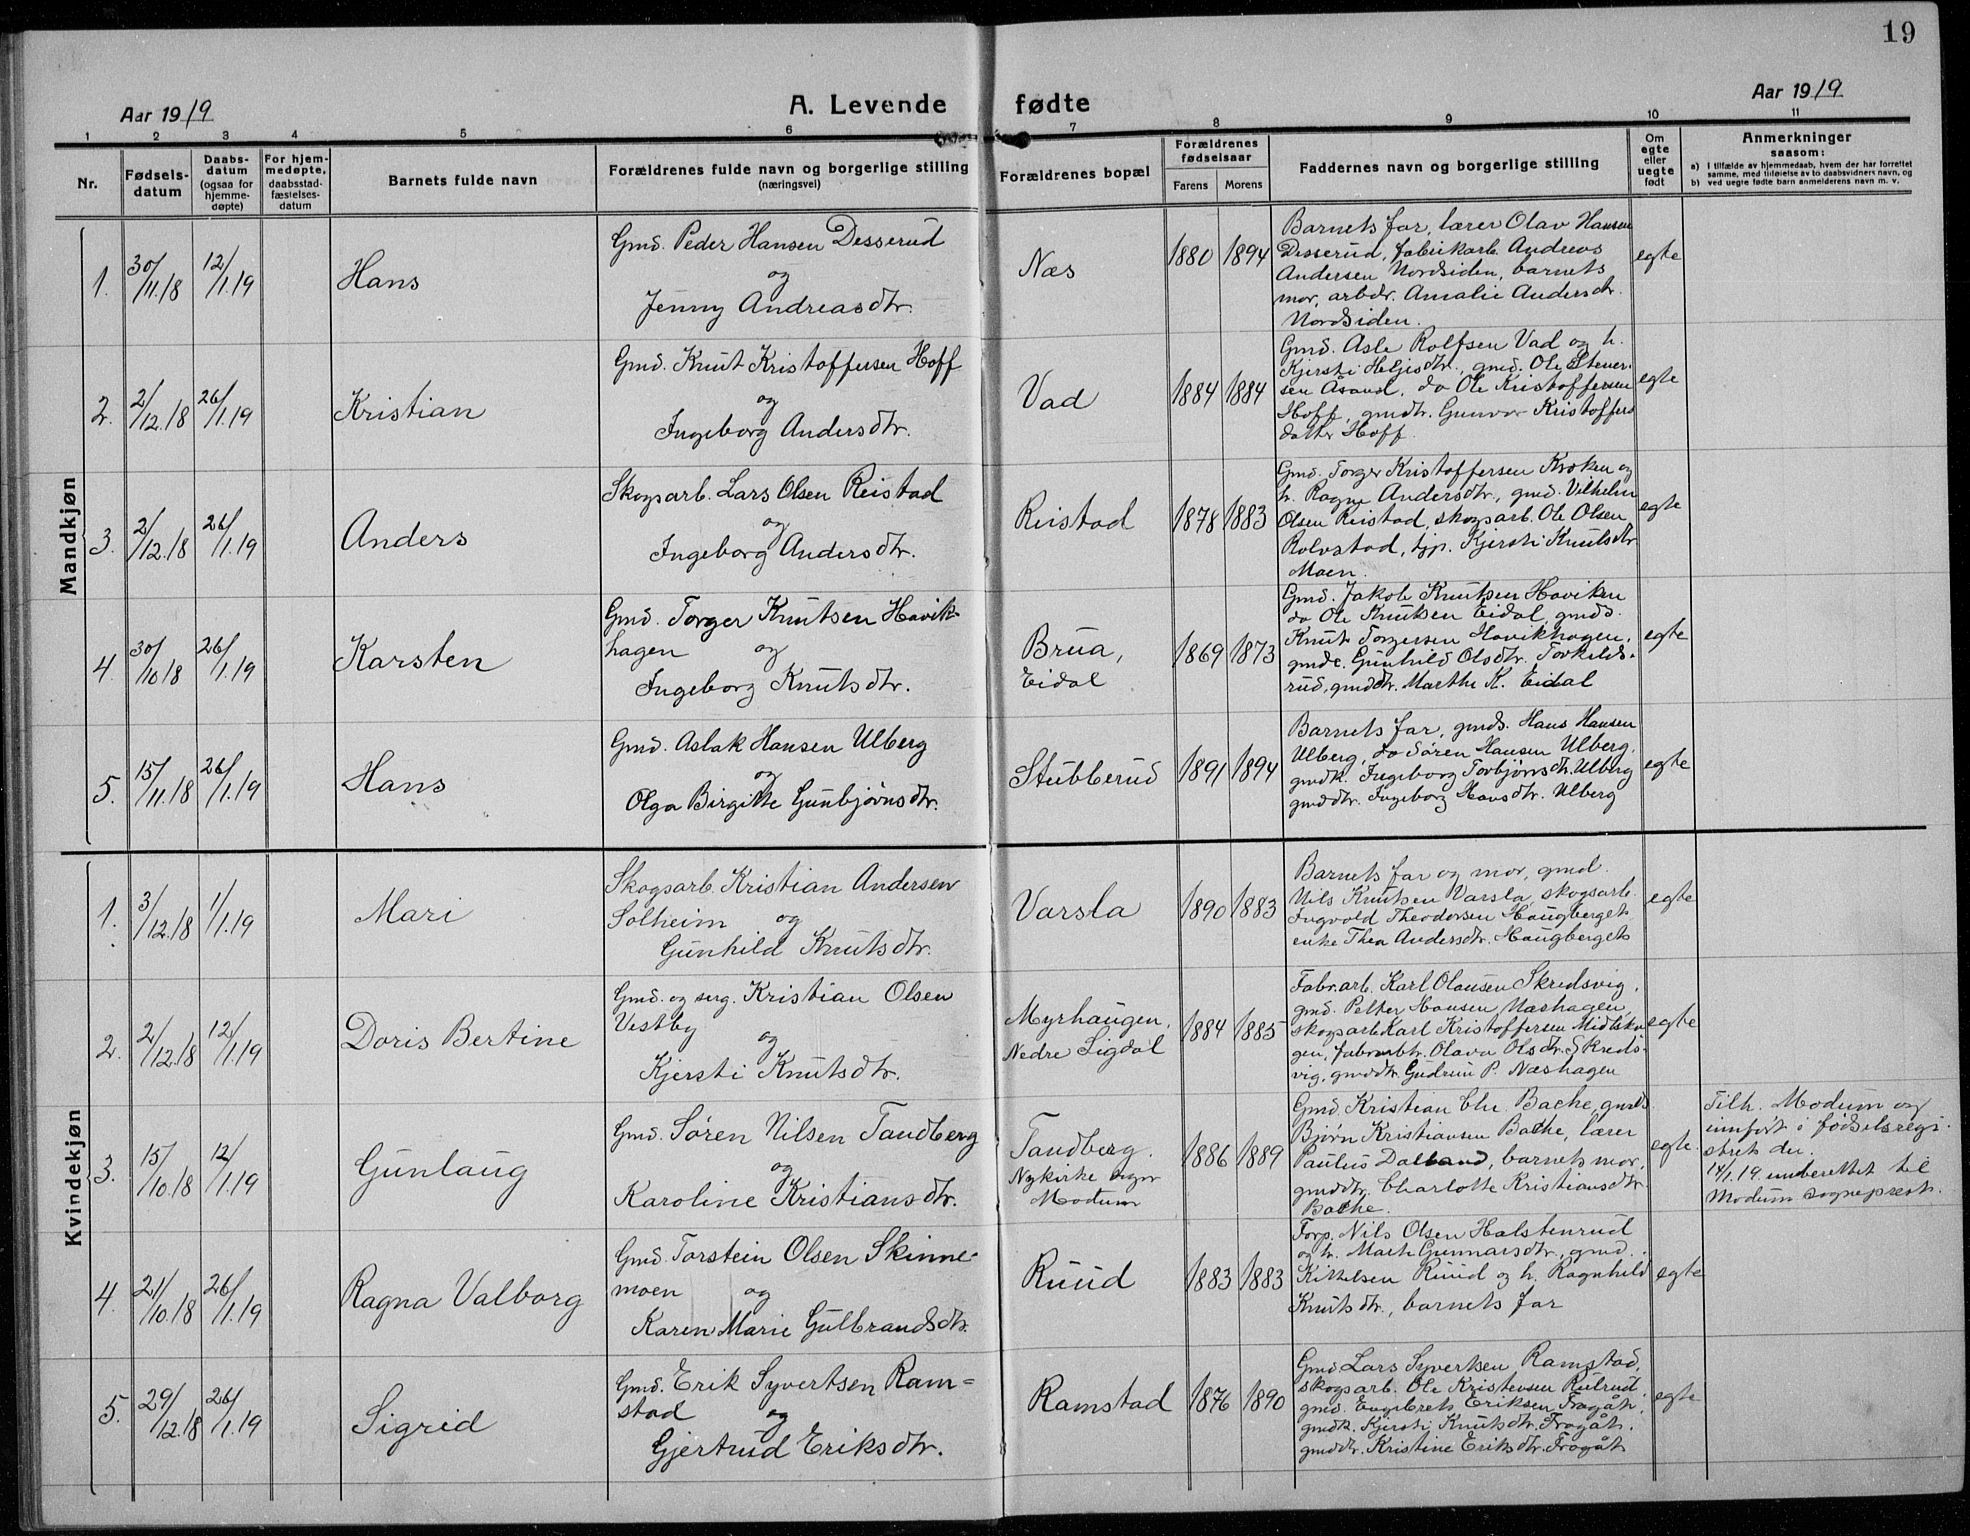 19
Aar 1919
A. Levende fødte
Aar 1919
1 2 3 4 5 6 7 8 9 10 11
Nr.
Fødsels-
datum
Daabs-
datum
(ogsaa for
hjemme-
døpte)
For hjem-
medøpte,
daabsstad-
fæstelses-
datum
Barnets fulde navn
Forældrenes fulde navn og borgerlige stilling
(næringsvei)
Forældrenes bopæl
Forældrenes
fødselsaar
Farens Morens
Faddernes navn og borgerlige stilling
Om
egte
eller
uegte
født
Anmerkninger
saasom:
a) I tilfælde av hjemmedaab, hvem der har forrettet
samme, med tilføielse av to daabsvidners navn, og
b) ved uegte fødte barn anmelderens navn m. v.
Mandkjøn
1. 30/11.18 12/1.19 Hans
Gmd. Peder Hansen Desserud
og
Jenny Andreasdtr.
Næs 1880 1894
Barnets far, lærer Olav Hansen
Desserud, fabrikarb. Andreas
Andersen Nordsiden, barnets
mor, arbdr. Amalie Andersdtr.
Nordsiden.
egte
2. 2/12.18 26/1.19 Kristian
Gmd. Knut Kristoffersen Hoff
og
Ingeborg Andersdtr.
Vad 1884 1884
Gmd. Asle Rolfsen Vad og h.
Kjersti Helgisdtr., gmd. Ole Stener-
sen Åsand, do Ole Kristoffersen
Hoff, gmdtr. Gunvor Kristoffers
datter Hoff.
egte
3. 2/12.18 26/1.19 Anders
Skogsarb. Lars Olsen Reistad
og
Ingeborg Andersdtr.
Reistad 1878 1883
Gmd. Torger Kristoffersen Kroken og
h. Ragne Andersdtr., gmd. Vilhelm
Olsen Reistad, skogsarb. Ole Olsen
Rolvstad, tjp. Kjersti Knutsdtr
Moen.
egte
4. 30/10.18 26/1.19 Karsten
Gmd. Torger Knutsen Havik-
hagen og
Ingeborg Knutsdtr.
Brua,
Eidal
1869 1873
Gmd. Jakob Knutsen Haviken
do Ole Knutsen Eidal, gmds.
Knut Torgersen Havikhagen,
gmdk. Gunhild Olsdtr. Torkilds-
rud, gmddtr. Marthe K. Eidal
egte
5. 15/11.18 26/1.19 Hans
Gmd. Aslak Hansen Ulberg
og
Olga Birgitte Gunbjørnsdtr.
Stubberud 1891 1894
Barnets far, gmds. Hans Hansen
Ulberg, do Søren Hansen Ulberg,
gmdk. Ingeborg Torbjørnsdtr. Ulberg
gmddtr. Ingeborg Hansdtr. Ulberg
egte
Kvindekjøn
1. 3/12.18 1/1.19 Mari
Skogsarb. Kristian Andersen
Solheim og
Gunhild Knutsdtr.
Varsla 1890 1883
Barnets far og mor, gmd.
Nils Knutsen Varsla, skogsarb.
Ingvald Theodorsen Haugberget
enke Thea Andersdtr. Haugberget
egte
2. 2/12.18 12/1.19 Doris Bertine
Gmd. og serg. Kristian Olsen
Vestby
og
Kjersti Knutsdtr.
Myrhaugen,
Nedre Sigdal
1884 1885
Fabr.arb. Karl Olausen Skredsvig,
gmd. Petter Hansen Næshagen,
skogsarb Karl Kristoffersen Midtsko
gen, fabrarbtr. Olava Olsdtr. Skreds-
vig, gmddtr. Gudrun P. Næshagen
egte
3. 15/10.18 12/1.19 Gunlaug
Gmd. Søren Nilsen Tandberg
og
Karoline Kristiansdtr.
Tandberg.
Nykirke sogn
Modum
1886 1889
Gmd. Kristian Chr. Bache, gmds.
Bjørn Kristiansen Bache, lærer
Paulus Dalland, barnets mor,
gmddtr. Charlotte Kristiansdtr.
Bache.
egte.
Tilh. Modum og
innført i fødselsregi-
stret der.
14/1.19 underrettet til
Modum sogneprest.
4. 21/10.18 26/1.19 Ragna Valborg
Gmd. Torstein Olsen Skinne-
moen og
Karen Marie Gulbrandsdtr.
Ruud 1883 1883
Forp. Nils Olsen Halstenrud
og h. Marte Gunnarsdtr., gmd.
Kittelsen Ruud og h. Ragnhild
Knutsdtr., barnets far
egte
5. 29/12.18 26/1.19 Sigrid
Gmd. Erik Syvertsen Ram-
stad og
Gjertrud Eriksdtr.
Ramstad 1876 1890
Gmd Lars Syvertsen Ramstad,
skogsarb. Ole Kristensen Rulrud,
gmd. Engebret Eriksen Frøgåt,
gmdk. Kjersti Knutsdtr. Frøgåt.
gmddtr. Kristine Eriksdtr. Frøgåt
egte